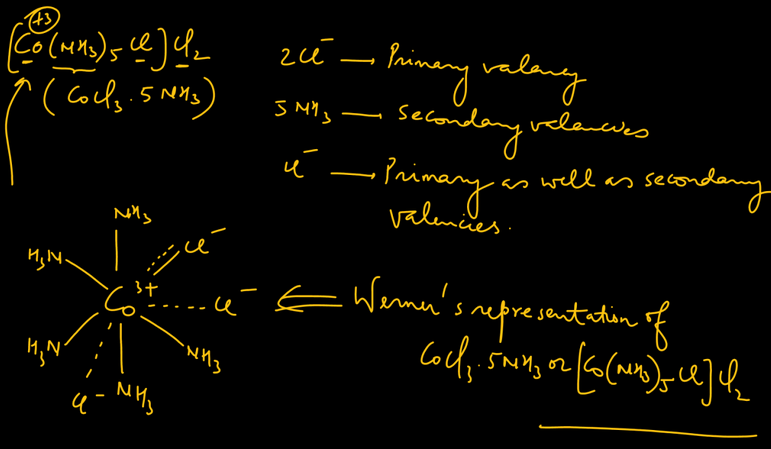 +3
[Co(NH3)5Cl]Cl2
(CoCl3.5NH3)
2Cl⁻ → Primary valency
5NH3 → Secondary valencies
Cl⁻ → Primary as well as secondary
valencies.
NH3
H3N
Cl⁻
Co3+
Cl⁻
H3N
NH3
Cl-
NH3
⇐ Werner's representation of
CoCl3.5NH3 or [Co(NH3)5Cl]Cl2